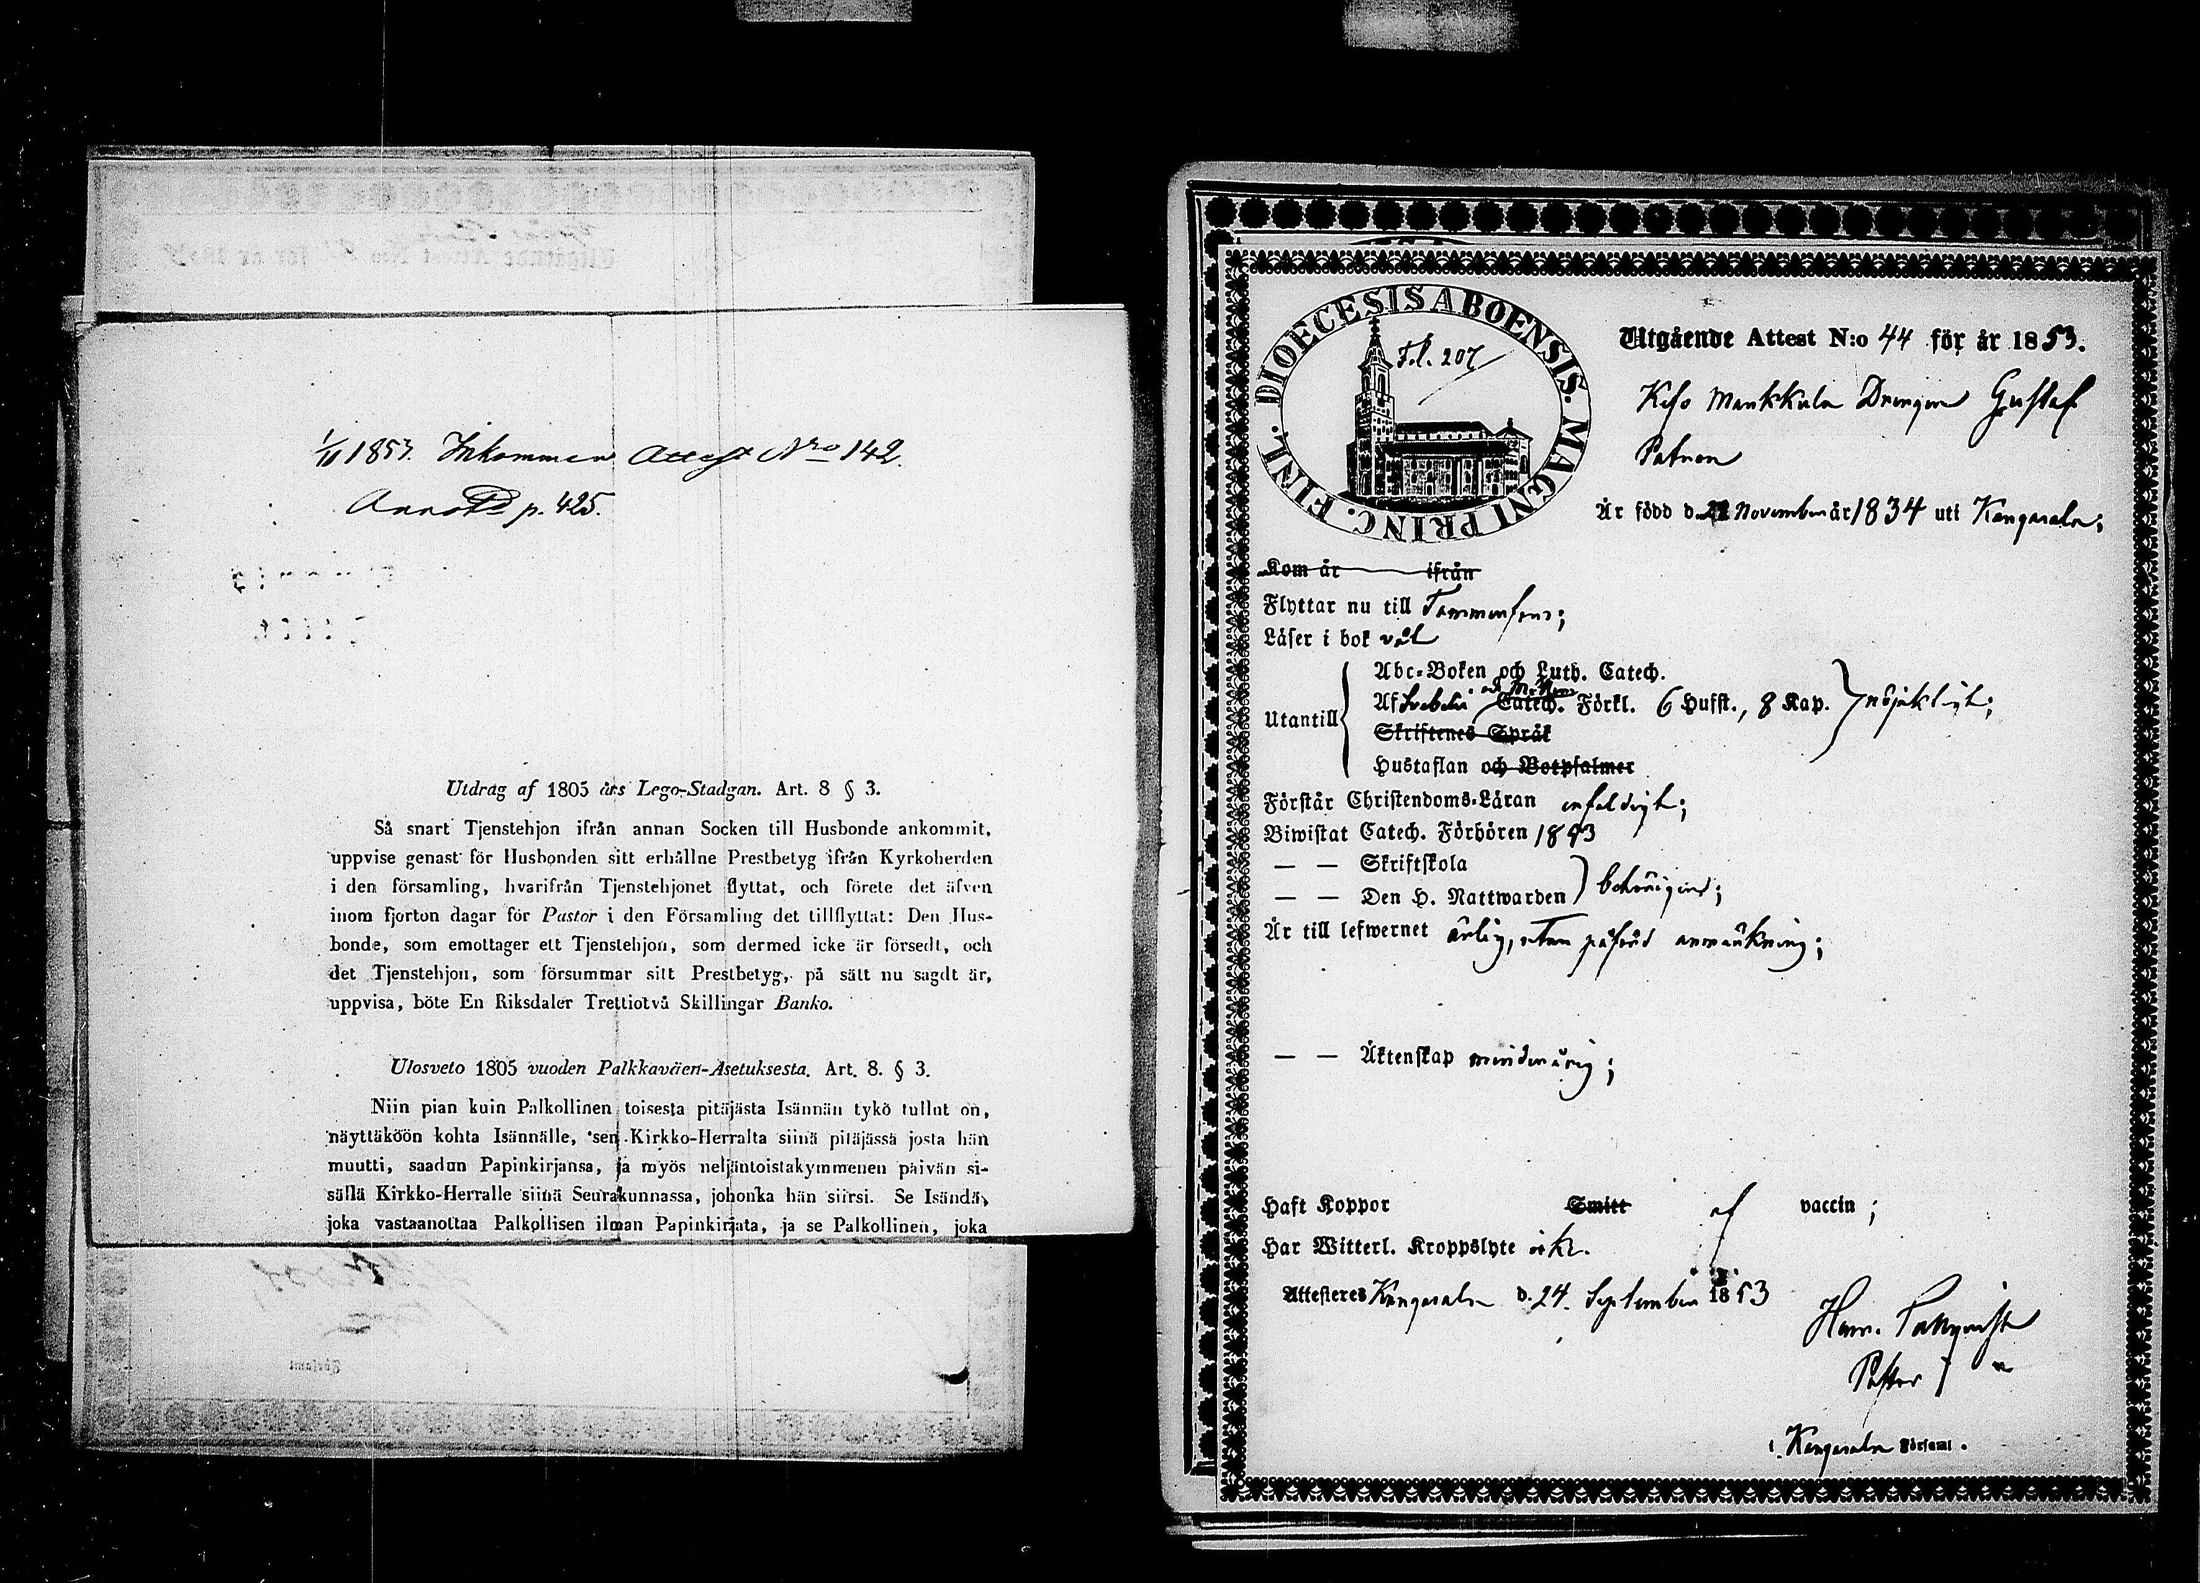 1/10 1853. Inkommen Attest Nro 142.
Annot. p. 425.
Utdrag af 1805 års Lego-Stadgan. Art. 8 § 3.
Så snart Tjenstehjon ifrån annan Socken till Husbonde ankommit,
uppvise genast för Husbonden sitt erhållne Prestbetyg ifrån Kyrkoherden
i den församling, hvarifrån Tjenstehjonet flyttat, och förete det äfven
inom fjorton dagar för Pastor i den Församling det tillflyttat: Den Hus-
bonde, som emottager ett Tjenstehjon, som dermed icke är försedt, och
det Tjenstehjon, som försummar sitt Prestbetyg, på sätt nu sagdt är,
uppvisa, böte En Riksdaler Trettiotvå Skillingar Banko.
Ulosveto 1805 vuoden Palkkaväen-Asetuksesta. Art. 8. § 3.
Niin pian kuin Palkollinen toisesta pitäjästä Isännän tykö tullut on,
näyttäköön kohta Isännälle, sen Kirkko-Herralta siinä pitäjässä josta hän
muutti, saadun Papinkirjansa, ja myös neljäntoistakymmenen päivän si-
sällä Kirkko-Herralle siinä Seurakunnassa, johonka hän siirsi. Se Isändä,
joka vastaanottaa Palkollisen ilman Papinkirjata, ja se Palkollinen, joka
DIOECESIS ABOENSIS. MAGNI PRINC. FINL.
Fol. 207
Utgående Attest N:o 44 för år 1853.
Keso Markkula Drengen Gustaf
Är född d. November år 1834 uti Kangasala;
Kom år ifrån
Flyttar nu till Tammerfors;
Läser i bok väl
Utantill
Abc-Boken och Luth. Catech.
Af Svebelii Catech. Förkl. 6 Hufst., 8 Kap. nöjaktigt;
Skriftenes Språk
Hustaflan och Botpsalmer
Förstår Christendoms-Läran enfaldigt;
Biwistat Catech. Förhören 1853
— — Skriftskola
— — Den H. Nattwarden behörigen;
Är till lefwernet ärlig, utan påförd anmärkning;
— — Äktenskap minderårig;
Haft Koppor Smitt af vaccin;
Har Witterl. Kroppslyte ick.
Attesteres Kangasala d. 24. September 1853
Pastor
i Kangasala Församl.